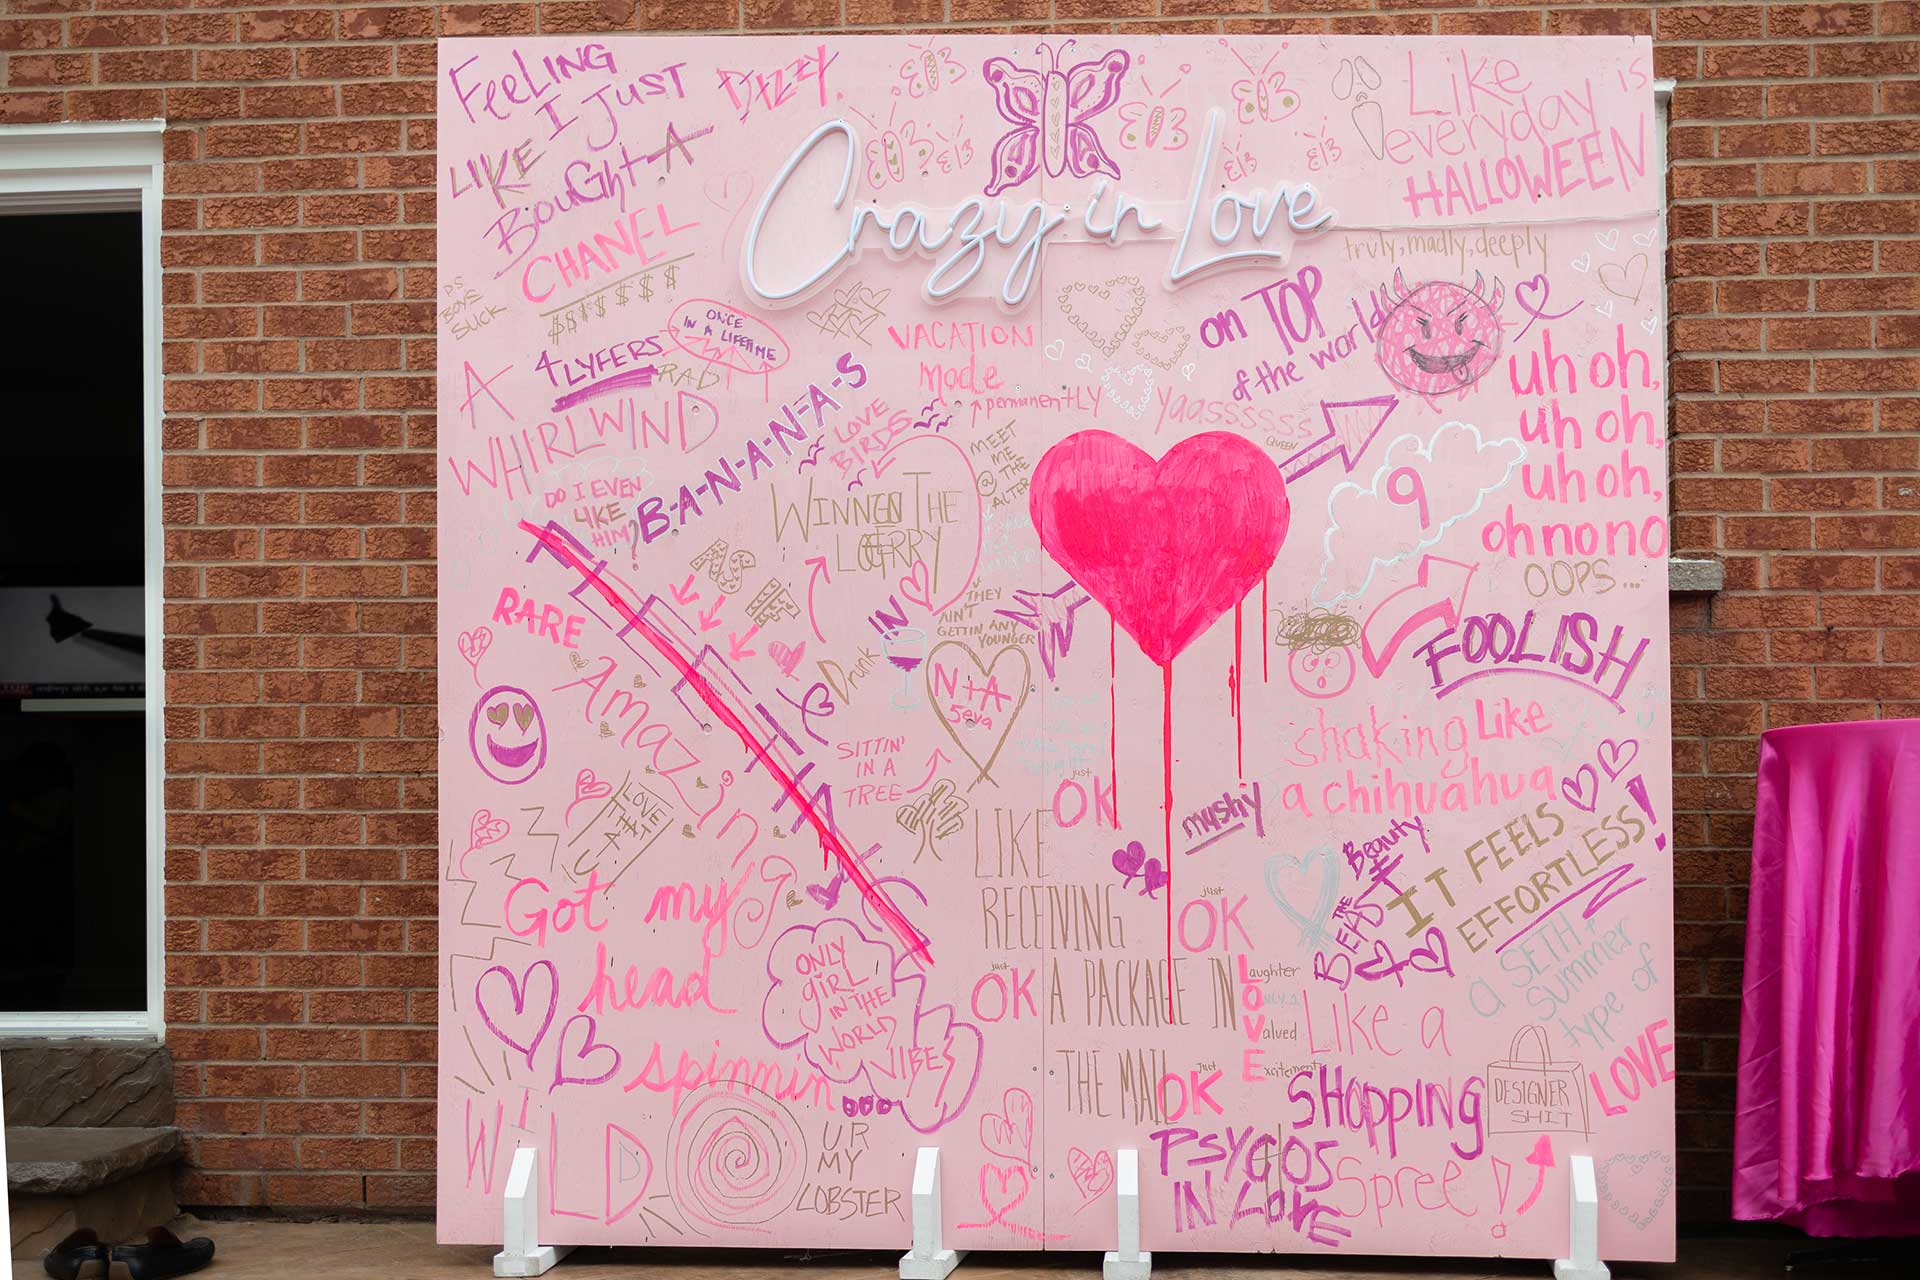 FEELING
I JUST
LIKE
BOUGHT A
CHANEL
$$$$$$$
P.S.
BOYS
SUCK
DIZZY.
Crazy in Love
Like
everyday is
HALLOWEEN
truly, madly, deeply
4LYFERS
ONCE
IN A LIFETIME
RAD
A
WHIRLWIND
VACATION
Mode
permanentLY
on TOP
of the world
yaasssssss
QUEEN
uh oh,
uh oh,
uh oh,
oh no no
OOPS ...
B-A-N-A-N-A-S
LOVE
BIRDS
MEET
ME
@ THE
ALTER
DO I EVEN
LIKE
HIM?
WINNING THE
9
RARE
IN
THEY
AIN'T
GETTIN ANY
YOUNGER
FOOLISH
Drunk
N+A
5eva
Amazing
SITTIN'
IN A
TREE
shaking Like
a chihuahua
just
OK
mushy
LOVE
Beauty
&
THE
BEAST
IT FEELS
EFFORTLESS!
LIKE
RECEIVING
A PACKAGE IN
THE MAIL
just
OK
just
OK
just
OK
Got my
head
spinnin...
ONLY
girl
IN THE
WORLD
VIBES
LOVE
Laughter
Valued
Excitement
a SETH,
Summer
type of
LOVE
Like a
SHOPPING
Spree!
DESIGNER
SHIT
WILD
UR
MY
LOBSTER
PSYCOS
IN LOVE